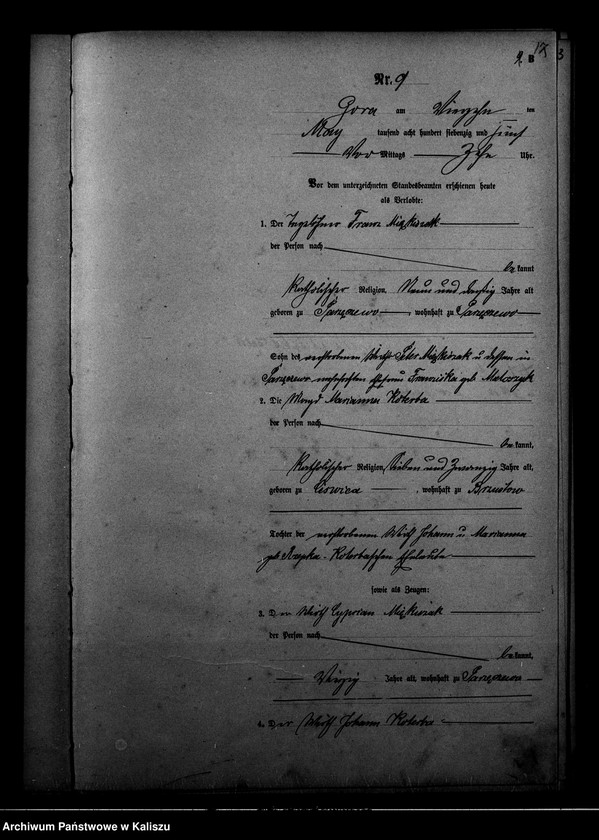 9. B 17
3
Nr. 9
Gora am Vierzehn ten
May tausend acht hundert siebenzig und fünf
Vor Mittags Zehn Uhr.
Vor dem unterzeichneten Standesbeamten erschienen heute
als Verlobte:
1. Der Tagelöhner Franz Miąskiewiak
der Person nach
be kannt
Katholischer Religion, Neun und dreißig Jahre alt
geboren zu wohnhaft zu
Sohn des verstorbenen Wirth Peter u dessen in
wohnhaften Ehefrau Franziska geb.
2. Die Magd Marianna Koterba
der Person nach
be kannt.
Katholischer Religion, Sieben und Zwanzig Jahre alt,
geboren zu , wohnhaft zu Brzustow
Tochter der verstorbenen Wirth Johann u Marianna
geb. Koterbaschen Eheleute
sowie als Zeugen:
3. Der Wirth Cyprian
der Person nach
be kannt,
Vierzig Jahre alt, wohnhaft zu
4. Der Wirth Johann Koterba
Archiwum Państwowe w Kaliszu